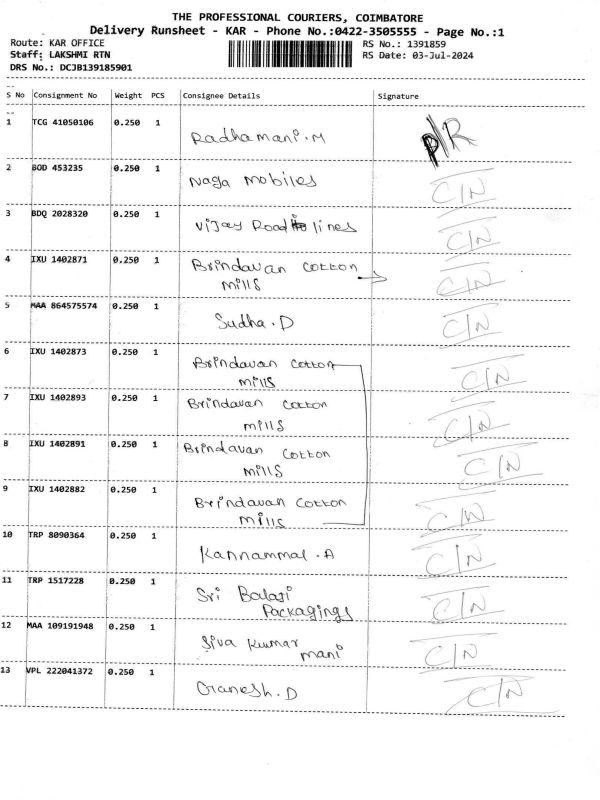 THE PROFESSIONAL COURIERS, COIMBATORE
Delivery Runsheet - KAR - Phone No.:0422-3505555 - Page No.:1
Route: KAR OFFICE RS No.: 1391859
Staff: LAKSHMI RTN RS Date: 03-Jul-2024
DRS No.: DCJB139185901
S No Consignment No Weight PCS Consignee Details Signature
1 TCG 41050106 0.250 1 Radhamani.M P/R
2 BOD 453235 0.250 1 Naga Mobiles C/N
3 BDQ 2028320 0.250 1 Vijay Road lines C/N
4 IXU 1402871 0.250 1 Brindavan Cotton
mills C/N
5 MAA 864575574 0.250 1 Sudha.D C/N
6 IXU 1402873 0.250 1 Brindavan Cotton
mills C/N
7 IXU 1402893 0.250 1 Brindavan Cotton
mills C/N
8 IXU 1402891 0.250 1 Brindavan Cotton
mills C/N
9 IXU 1402882 0.250 1 Brindavan Cotton
mills C/N
10 TRP 8090364 0.250 1 Kannammal.A C/N
11 TRP 1517228 0.250 1 Sri Balaji
Packagings C/N
12 MAA 109191948 0.250 1 Siva Kumar
mani C/N
13 VPL 222041372 0.250 1 Ganesh.D C/N